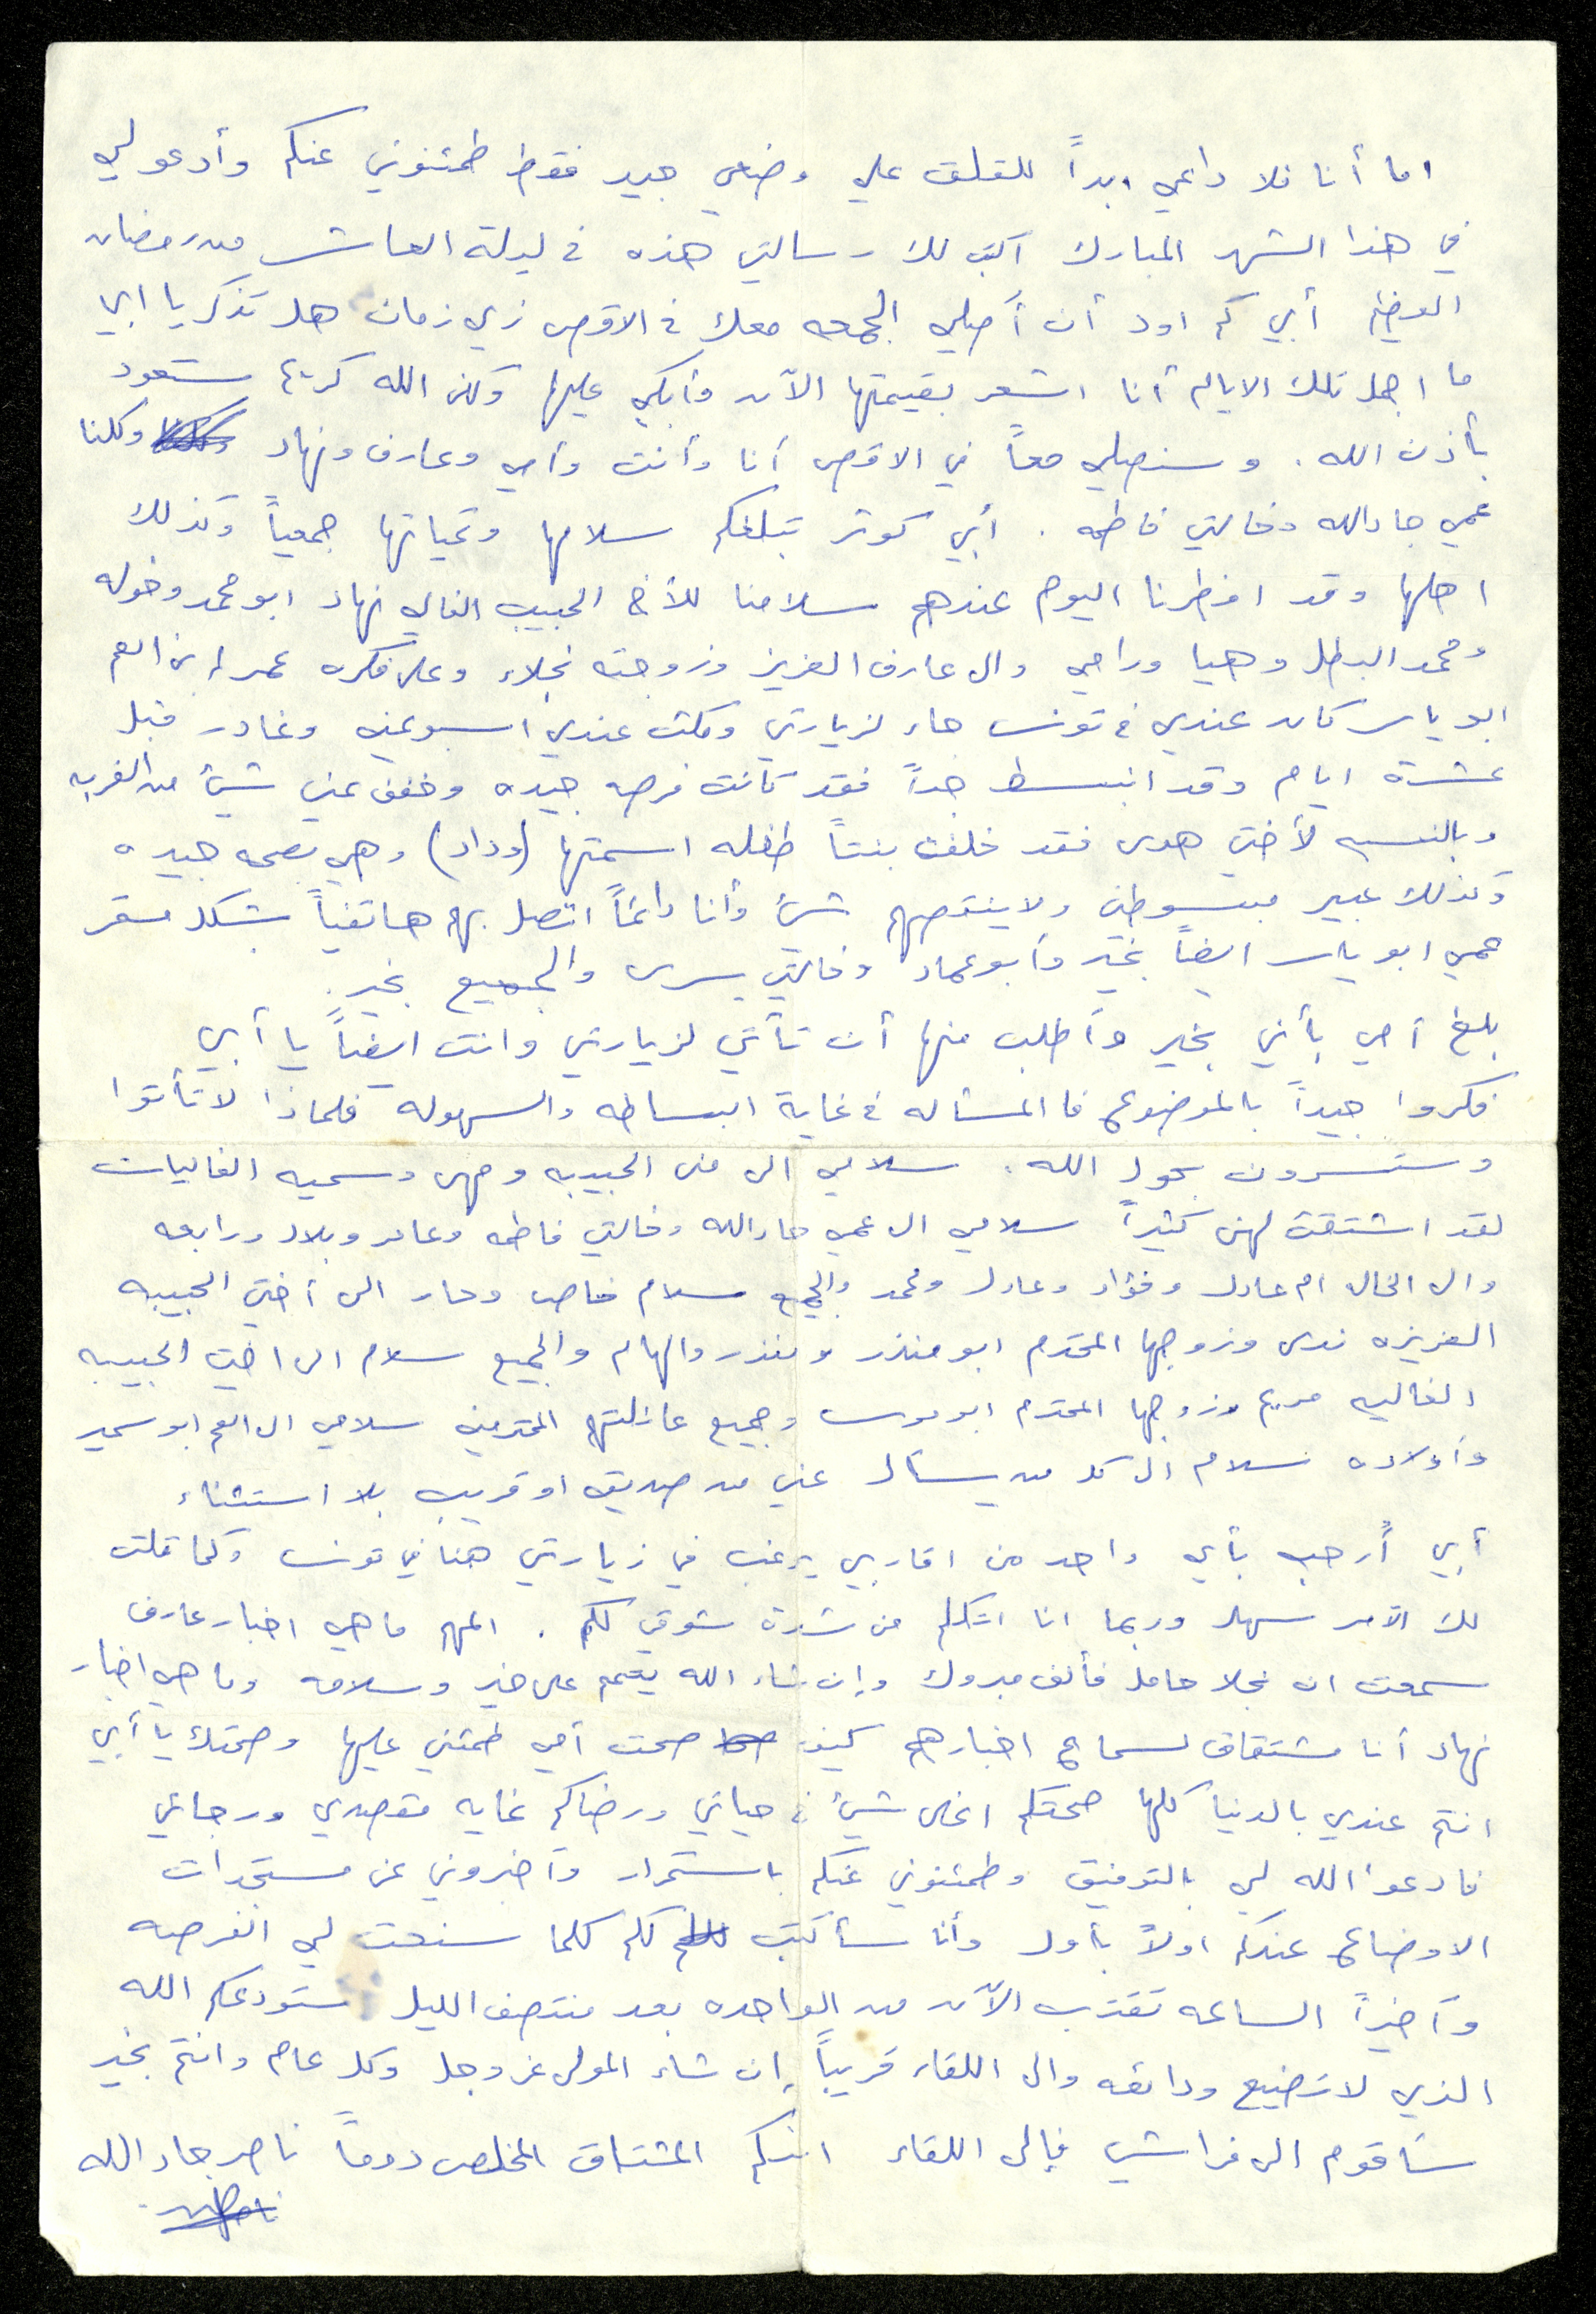 اما أنا فلا داعي ابداً للقلق علي وضعي جيد فقط طمئنوني عنكم وأدعو لي
في هذا الشهر المبارك اكتب لك رسالتي هذه في ليلة العاشر من رمضان
أبي كم اود أن أصلي الجمعه معك في الاقصى زي زمان هل تذكر يا ابي
ما اجمل تلك الايام أنا اشعر بقيمتها الآن وأبكي عليها ولكن الله كريم ستعود
بأذن الله . وسنصلي معاً في الاقصى أنا وأنت وأمي وعارف ونهاد وكلنا
عمي جادالله وخالتي فاطمه . أبي كوثر تبلغكم سلامها وتحياتها جمعياً وكذلك
اهلها وقد افطرنا اليوم عندهم سلامنا للأخ الحبيب الغالي نهاد ابو محمد وخوله
ومحمد البطل وهيا ورامي والى عارف العزيز وزوجته نجلاء وعلى فكره عمر ابن العم
ابو ياسر كان عندي في تونس جاء لزيارتي ومكث عندي اسبوعين وغادر قبل
عشرة ايام وقد انبسط جداً فقد كانت فرصه جيده وخفف عني شيئ من الغربه
وبالنسبه لأختي هدى فقد خلفت بنتاً طفله اسمتها (وداد) وهي بصحه جيده
وكذلك عبير مبسوطين ولا ينقصهم شيئ وأنا دائماً اتصل بهم هاتفياً بشكل مستمر
عمي ابو ياسر ايضاً بخير وأبو عماد وخالتي يسرى والجميع بخير .
بلغ أمي بأني بخير وأطلب منها أن تأتي لزيارتي وانت ايضاً يا أبي
فكروا جيداً بالموضوع فا المسأله في غاية البساطه والسهوله فلماذا لا تأتوا
وستسرون بحول الله . سلامي الى منى الحبيبه ومهى وسميه الغاليات
لقد اشتقت لهن كثيراً سلامي الى عمي جادالله وخالتي فاطمه وعامر وبلال ورابعه
والى الخال ام عادل وفؤاد وعادل ومحمد والجميع سلام خاص وحار الى أختي الحبيبه
العزيزه ندى وزوجها المحترم ابو منذر ومنذر والهام والجميع سلام الى اختي الحبيبه
الغاليه مريم وزوجها المحترم ابو موسى وجميع عائلتهم المحترمين سلامي الى العم ابو سمير
وأولاده سلام الى كل من يسأل عني من صديق او قريب بلا استثناء
أبي أُرحب بأي واحد من اقاربي يرغب في زيارتي هنا في تونس وكما قلت
لك الآمر سهل وربما انا اتكلم من شدة شوقي لكم . المهم ما هي اخبار عارف
سمعت ان نجلا حامل فألف مبروك وإن شاء الله يتمم على خير وسلامه وما هي اخبار
نهاد أنا مشتقاق لسماع اخبارهم كيف صحت أمي طمئني عليها وصحتك يا أبي
انتم عندي بالدنيا كلها صحتكم اغلى شيئ في حياتي ورضاكم غايه مقصدي ورجائي
فادعوا الله لي بالتوفيق وطمئنوني عنكم باستمرار وأخبروني عن مستجدات
الاوضاع عندكم اولاً بأول وأنا سأكتب لكم كلما سنحت لي الفرصه
وأخيراً الساعه تقترب الآن من الواحده بعد منتصف الليل ستودعكم الله
الذي لا تضيع ودائعه والى اللقاء قريباً إن شاء المولى عز وجل وكل عام وانتم بخير
سأقوم الى فراشي فإلى اللقاء ابنكم المشتاق المخلص دوماً ناصر جاد الله